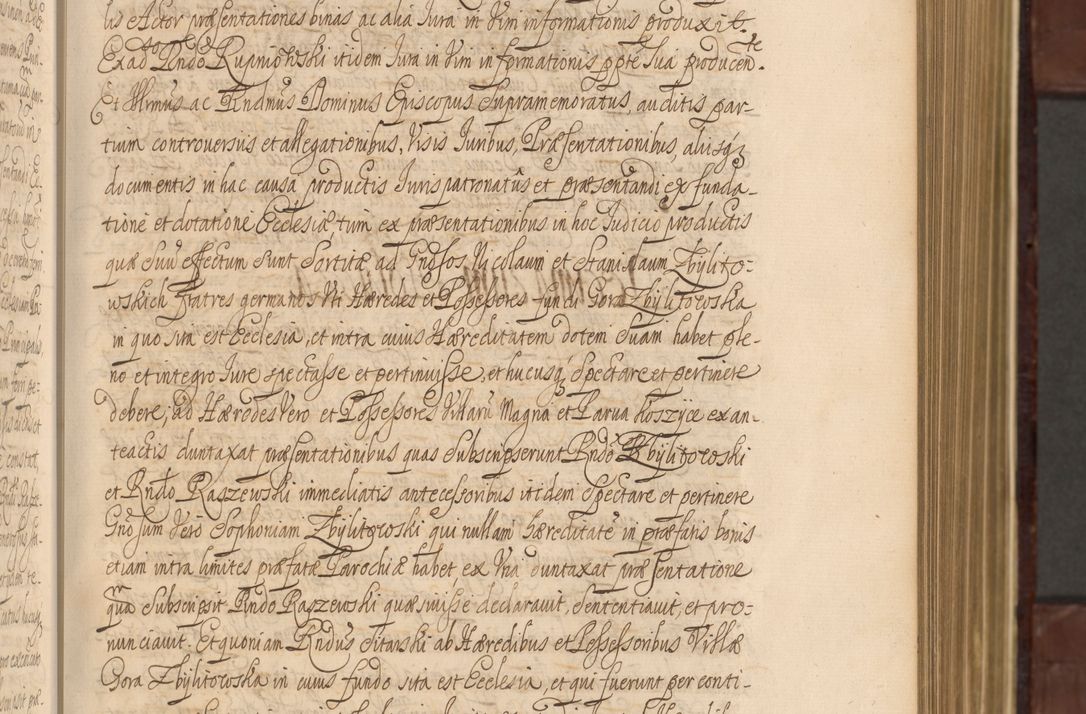 lis Actor præsentationes binas ac alia Jura in Vim informationis produxit.
Ex ad Rndo Rupniowski itidem Jura in Vim informationis ppte sua producente.
Et Illmus ac Rndmus Dominus Episcopus supramemoratus, auditis par-
tium controversiis et allegationibus, Visis Juribus, Præsentationibus, aliisq;
documentis in hac causa productis Juris patronatûs et præsentandi ex funda-
tione et dotatione Ecclesiæ, tum ex præsentationibus in hoc Judicio productis
quæ suū effectum sunt sortitæ ad Gnosos Nicolaum et Stanislaum Zbylito-
wskich Fratres germanos Uti Hæredes et Possessores fundi Gora Zbylitowska
in quo sita est Ecclesia, et intra cuius Hæreditatem dotem suam habet ple-
no et integro Jure spectasse et pertinuisse, et hucusq; spectare et pertinere
debere, ad Hæredes Vero et Possessores Villarū Magna et Parva Koszyce ex an-
teactis duntaxat præsentationibus quas subscripserunt Rndo Zbylitowski
et Rndo Raszewski immediatis antecessoribus itidem spectare et pertinere
Gnosum Vero Sophoniam Zbylitowski qui nullam hæreditatē in præfatis bonis
etiam intra limites præfatæ Parochiæ habet ex Una duntaxat præsentatione
quā subscripsit Rndo Raszewski quæsivisse declaravit, sententiavit, et pro-
nunciavit. Et quoniam Rndus Sitarski ab Hæredibus et Possessoribus Villæ
Gora Zbylitowska in cuius fundo sita est Ecclesia, et qui fuerunt per conti-